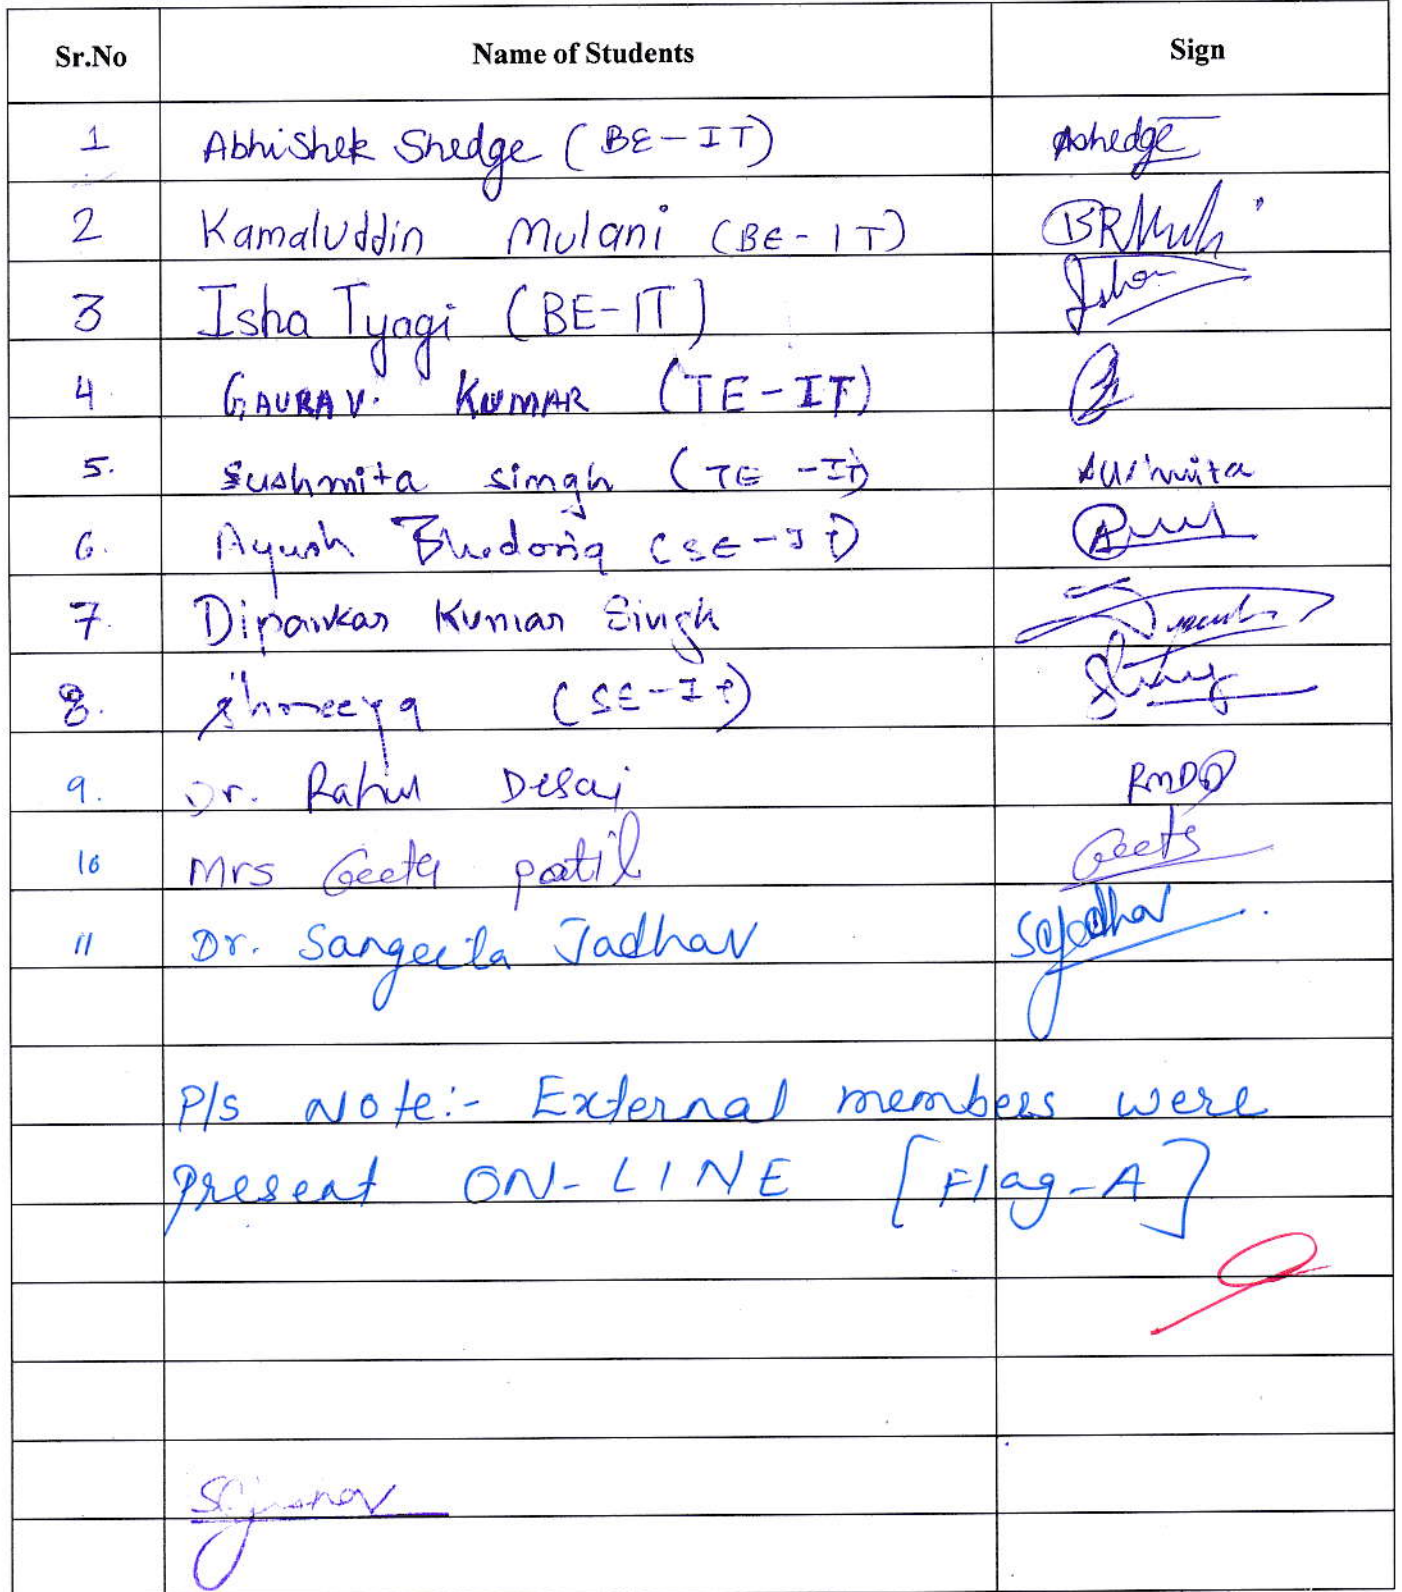 Sr.No Name of Students Sign
1 Abhishek Shedge (BE-IT) Ashedge
2 Kamaluddin Mulani (BE-IT)
3 Isha Tyagi (BE-IT) Isha
4. GAURAV. KUMAR (TE-IT)
5. Sushmita singh (TE-IT) sushmita
6. Ayush Bhadoria (SE-IT)
7. Dipankar Kumar Singh
8. Shreeya (SE-IT)
9. Dr. Rahul Desai RMDD
10 Mrs Geeta patil Geeta
11 Dr. Sangeeta Jadhav SGJadhav
P/s Note:- External members were
present ON-LINE [Flag-A]
SGJadhav